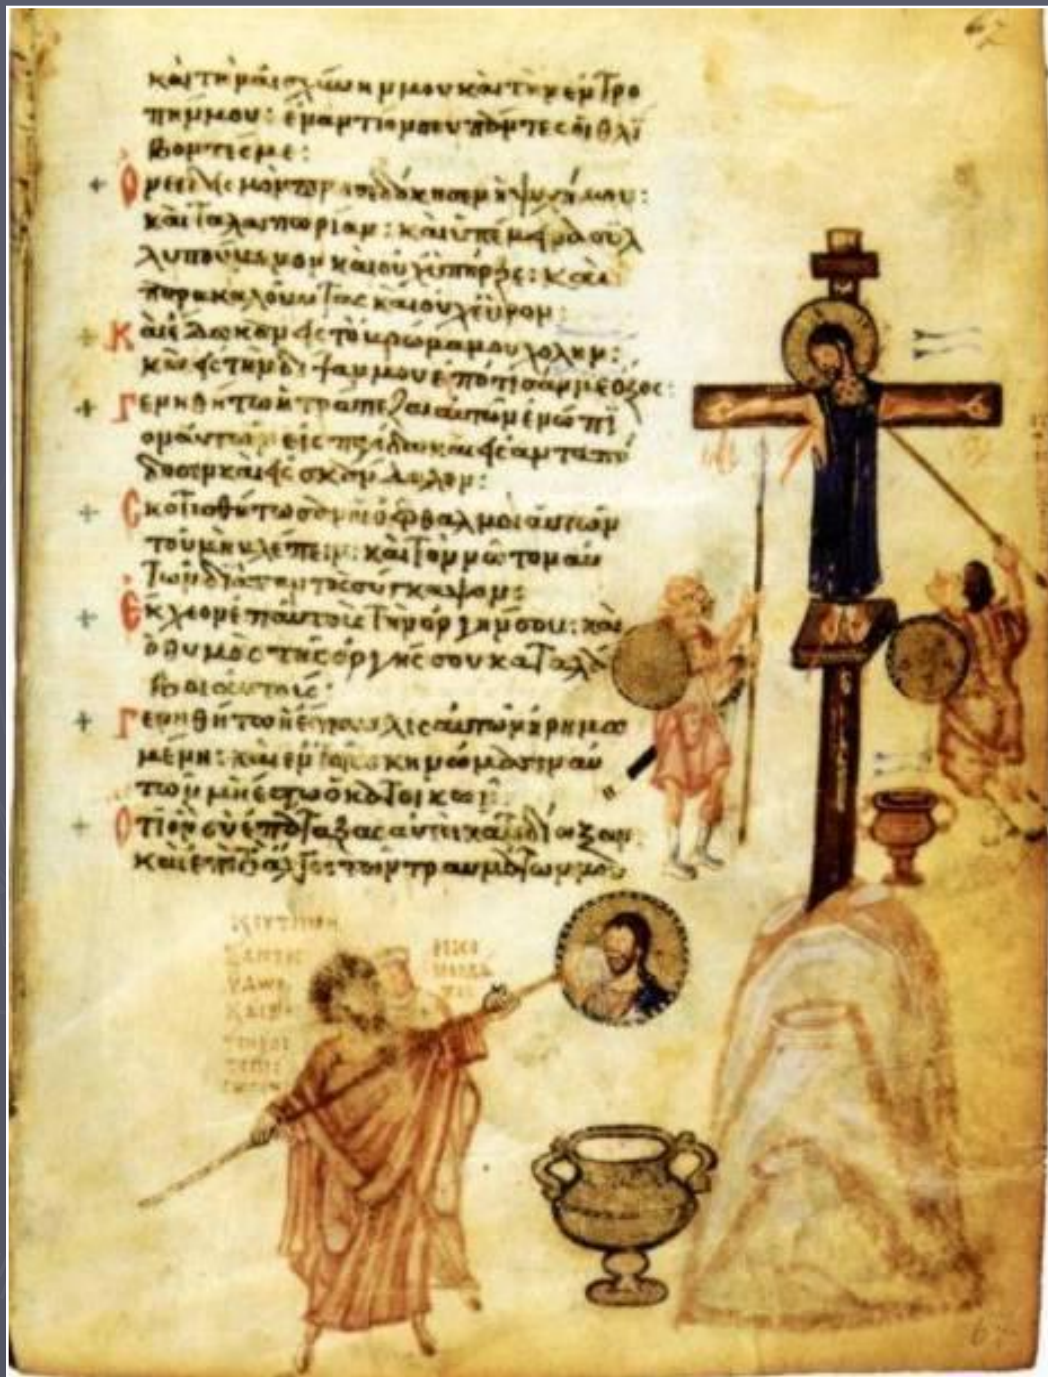 καὶ τὴν αἰσχύνην μου καὶ τὴν ἐντρο
πήν μου: ἐναντίον σου πάντες οἱ θλί
βοντές με:
+ Ὀνειδισμὸν προσεδόκησεν ἡ ψυχή μου:
καὶ ταλαιπωρίαν: καὶ ὑπέμεινα συλ
λυπούμενον καὶ οὐχ ὑπῆρξε: καὶ
παρακαλοῦντας καὶ οὐχ εὗρον:
+ Καὶ ἔδωκαν εἰς τὸ βρῶμά μου χολήν:
καὶ εἰς τὴν δίψαν μου ἐπότισάν με ὄξος:
+ Γενηθήτω ἡ τράπεζα αὐτῶν ἐνώπι
ον αὐτῶν εἰς παγίδα καὶ εἰς ἀνταπό
δοσιν καὶ εἰς σκάνδαλον:
+ Σκοτισθήτωσαν οἱ ὀφθαλμοὶ αὐτῶν
τοῦ μὴ βλέπειν: καὶ τὸν νῶτον αὐ
τῶν διὰ παντὸς σύγκαψον:
+ Ἔκχεον ἐπ' αὐτοὺς τὴν ὀργήν σου: καὶ
ὁ θυμὸς τῆς ὀργῆς σου καταλά
βοι αὐτούς:
+ Γενηθήτω ἡ ἔπαυλις αὐτῶν ἠρημω
μένη: καὶ ἐν τοῖς σκηνώμασιν αὐ
τῶν μὴ ἔστω ὁ κατοικῶν:
+ Ὅτι ὃν σὺ ἐπάταξας αὐτοὶ κατεδίωξαν:
καὶ ἐπὶ τὸ ἄλγος τῶν τραυμάτων μου
67